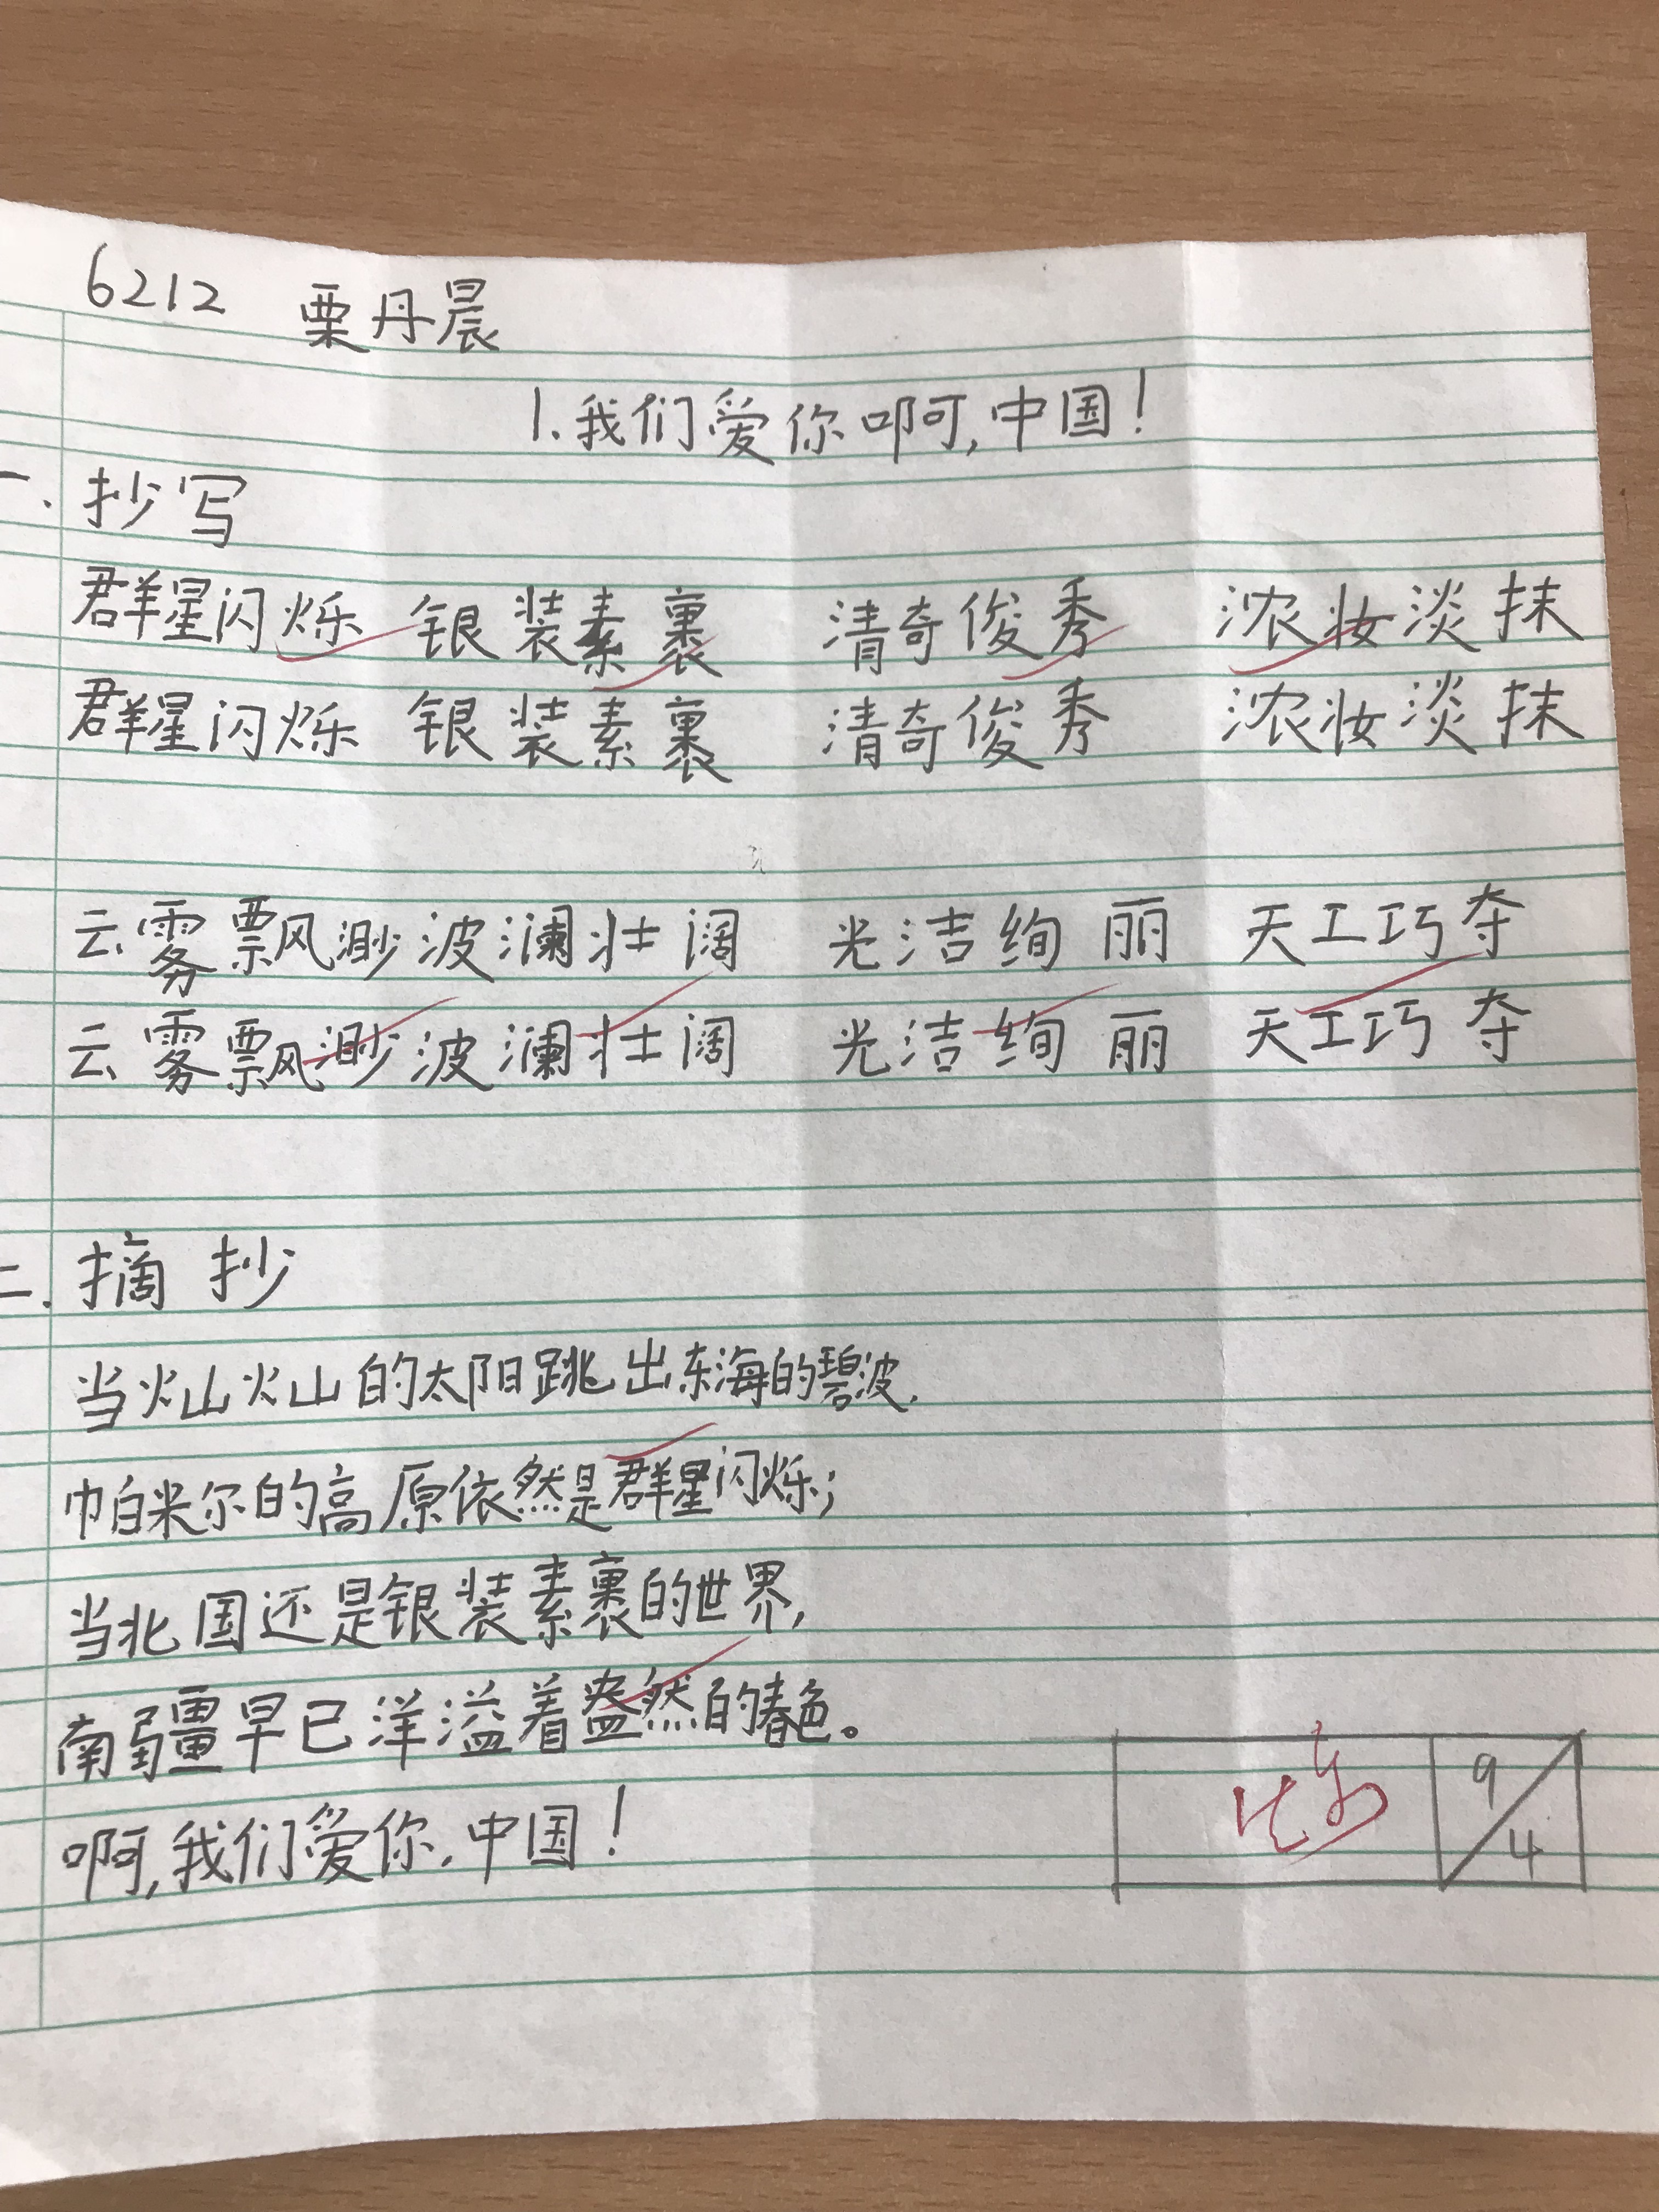 6212 栗丹晨
1.我们爱你啊,中国!
一.抄写
群星闪烁 银装素裹 清奇俊秀 浓妆淡抹
群星闪烁 银装素裹 清奇俊秀 浓妆淡抹
云雾飘渺 波澜壮阔 光洁绚丽 天工巧夺
云雾飘渺 波澜壮阔 光洁绚丽 天工巧夺
二.摘抄
当灿灿的太阳跳出东海的碧波,
帕米尔的高原依然是群星闪烁;
当北国还是银装素裹的世界,
南疆早已洋溢着盎然的春色。
啊,我们爱你,中国!
9/4